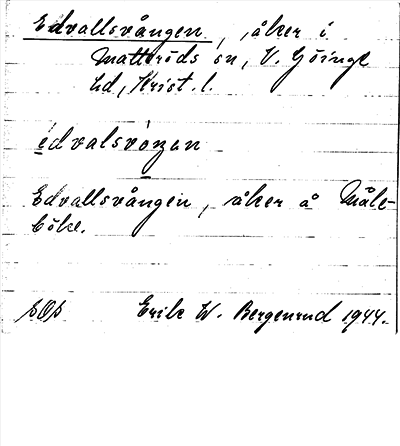 Edvallsvången, åker i
Matteröds sn, V. Göinge
hd, Krist. l.
édvalsvoŋən
Edvallsvången, åker å Måle-
böke.
Erik W. Bergenrud 1944.